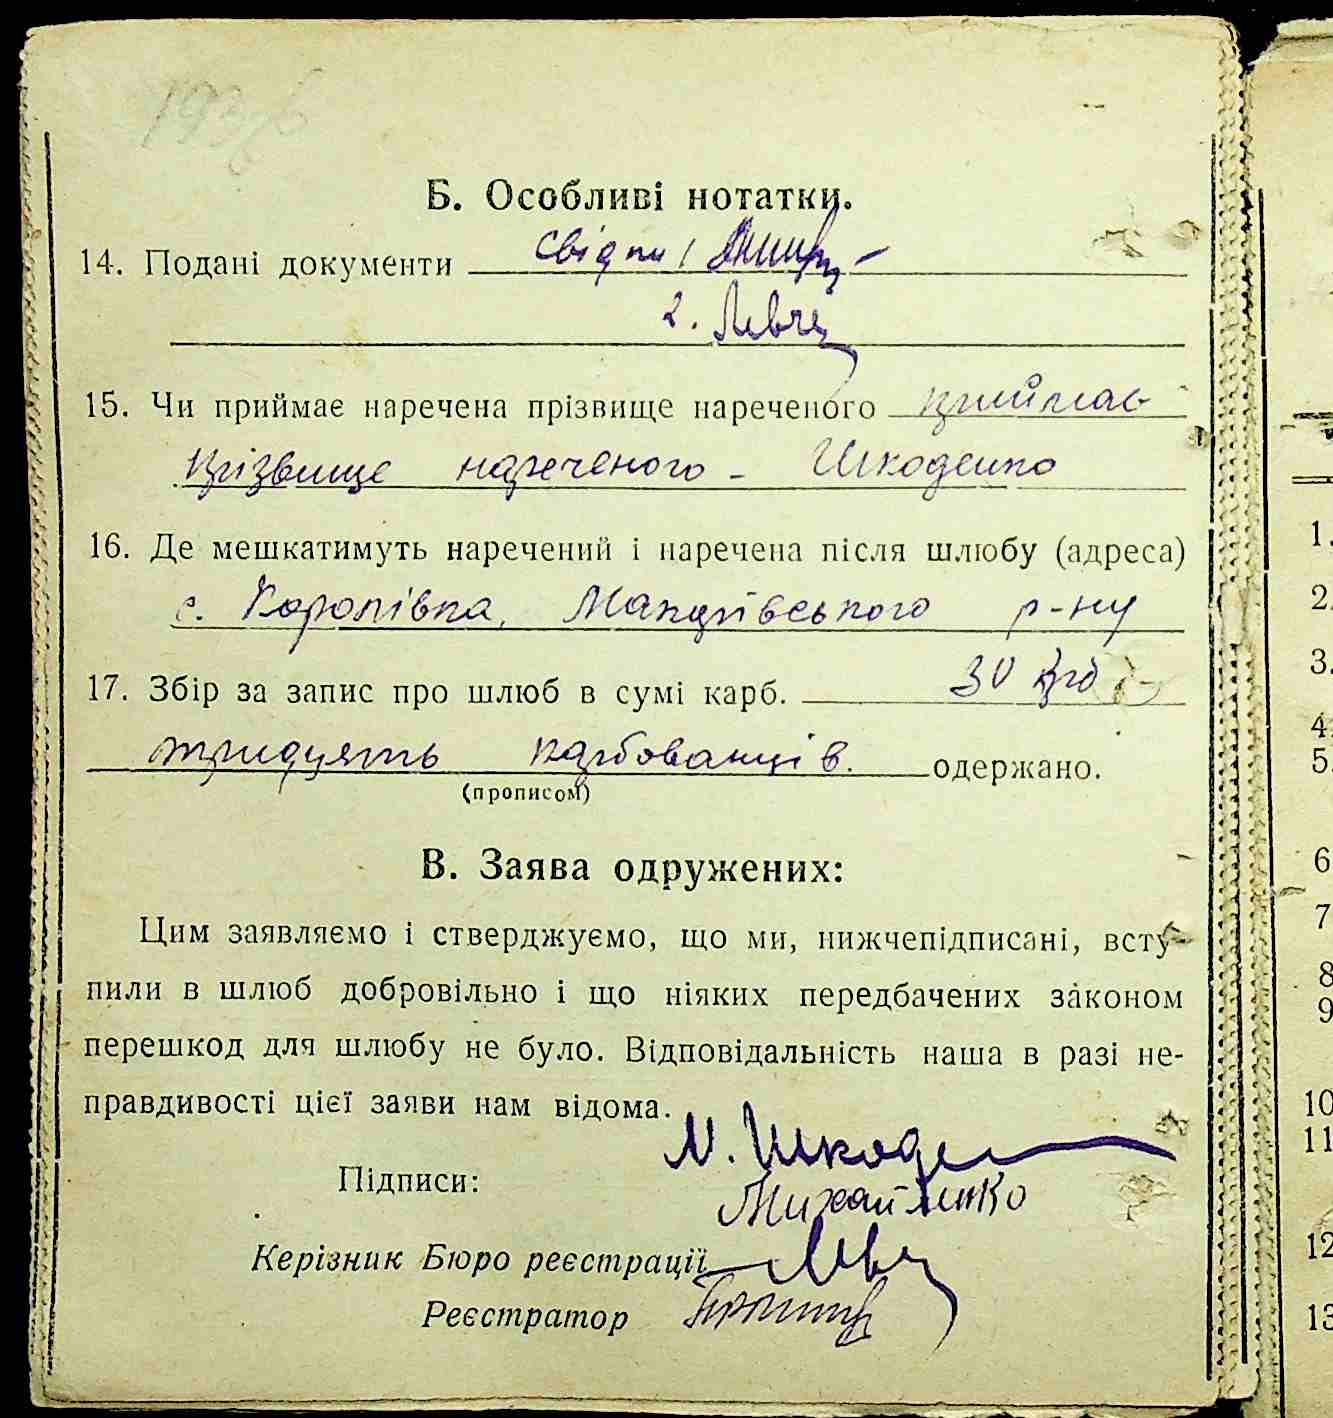 Б. Особливі нотатки.
14. Подані документи свідки 1
2. Левч
15. Чи приймає наречена прізвище нареченого приймає
прізвище нареченого - Шкоденко
16. Де мешкатимуть наречений і наречена після шлюбу (адреса)
с. Королівка, Макарівського р-ну
17. Збір за запис про шлюб в сумі карб. 30 крб
тридцять карбованців. одержано.
(прописом)
В. Заява одружених:
Цим заявляємо і стверджуємо, що ми, нижчепідписані, всту-
пили в шлюб добровільно і що ніяких передбачених законом
перешкод для шлюбу не було. Відповідальність наша в разі не-
правдивості цієї заяви нам відома.
М. Шкоде
Підписи:
Михайленко
Керізник Бюро реєстрації
Реєстратор
1.
2.
3.
4.
5.
6
7
8
9
10
11
12
13